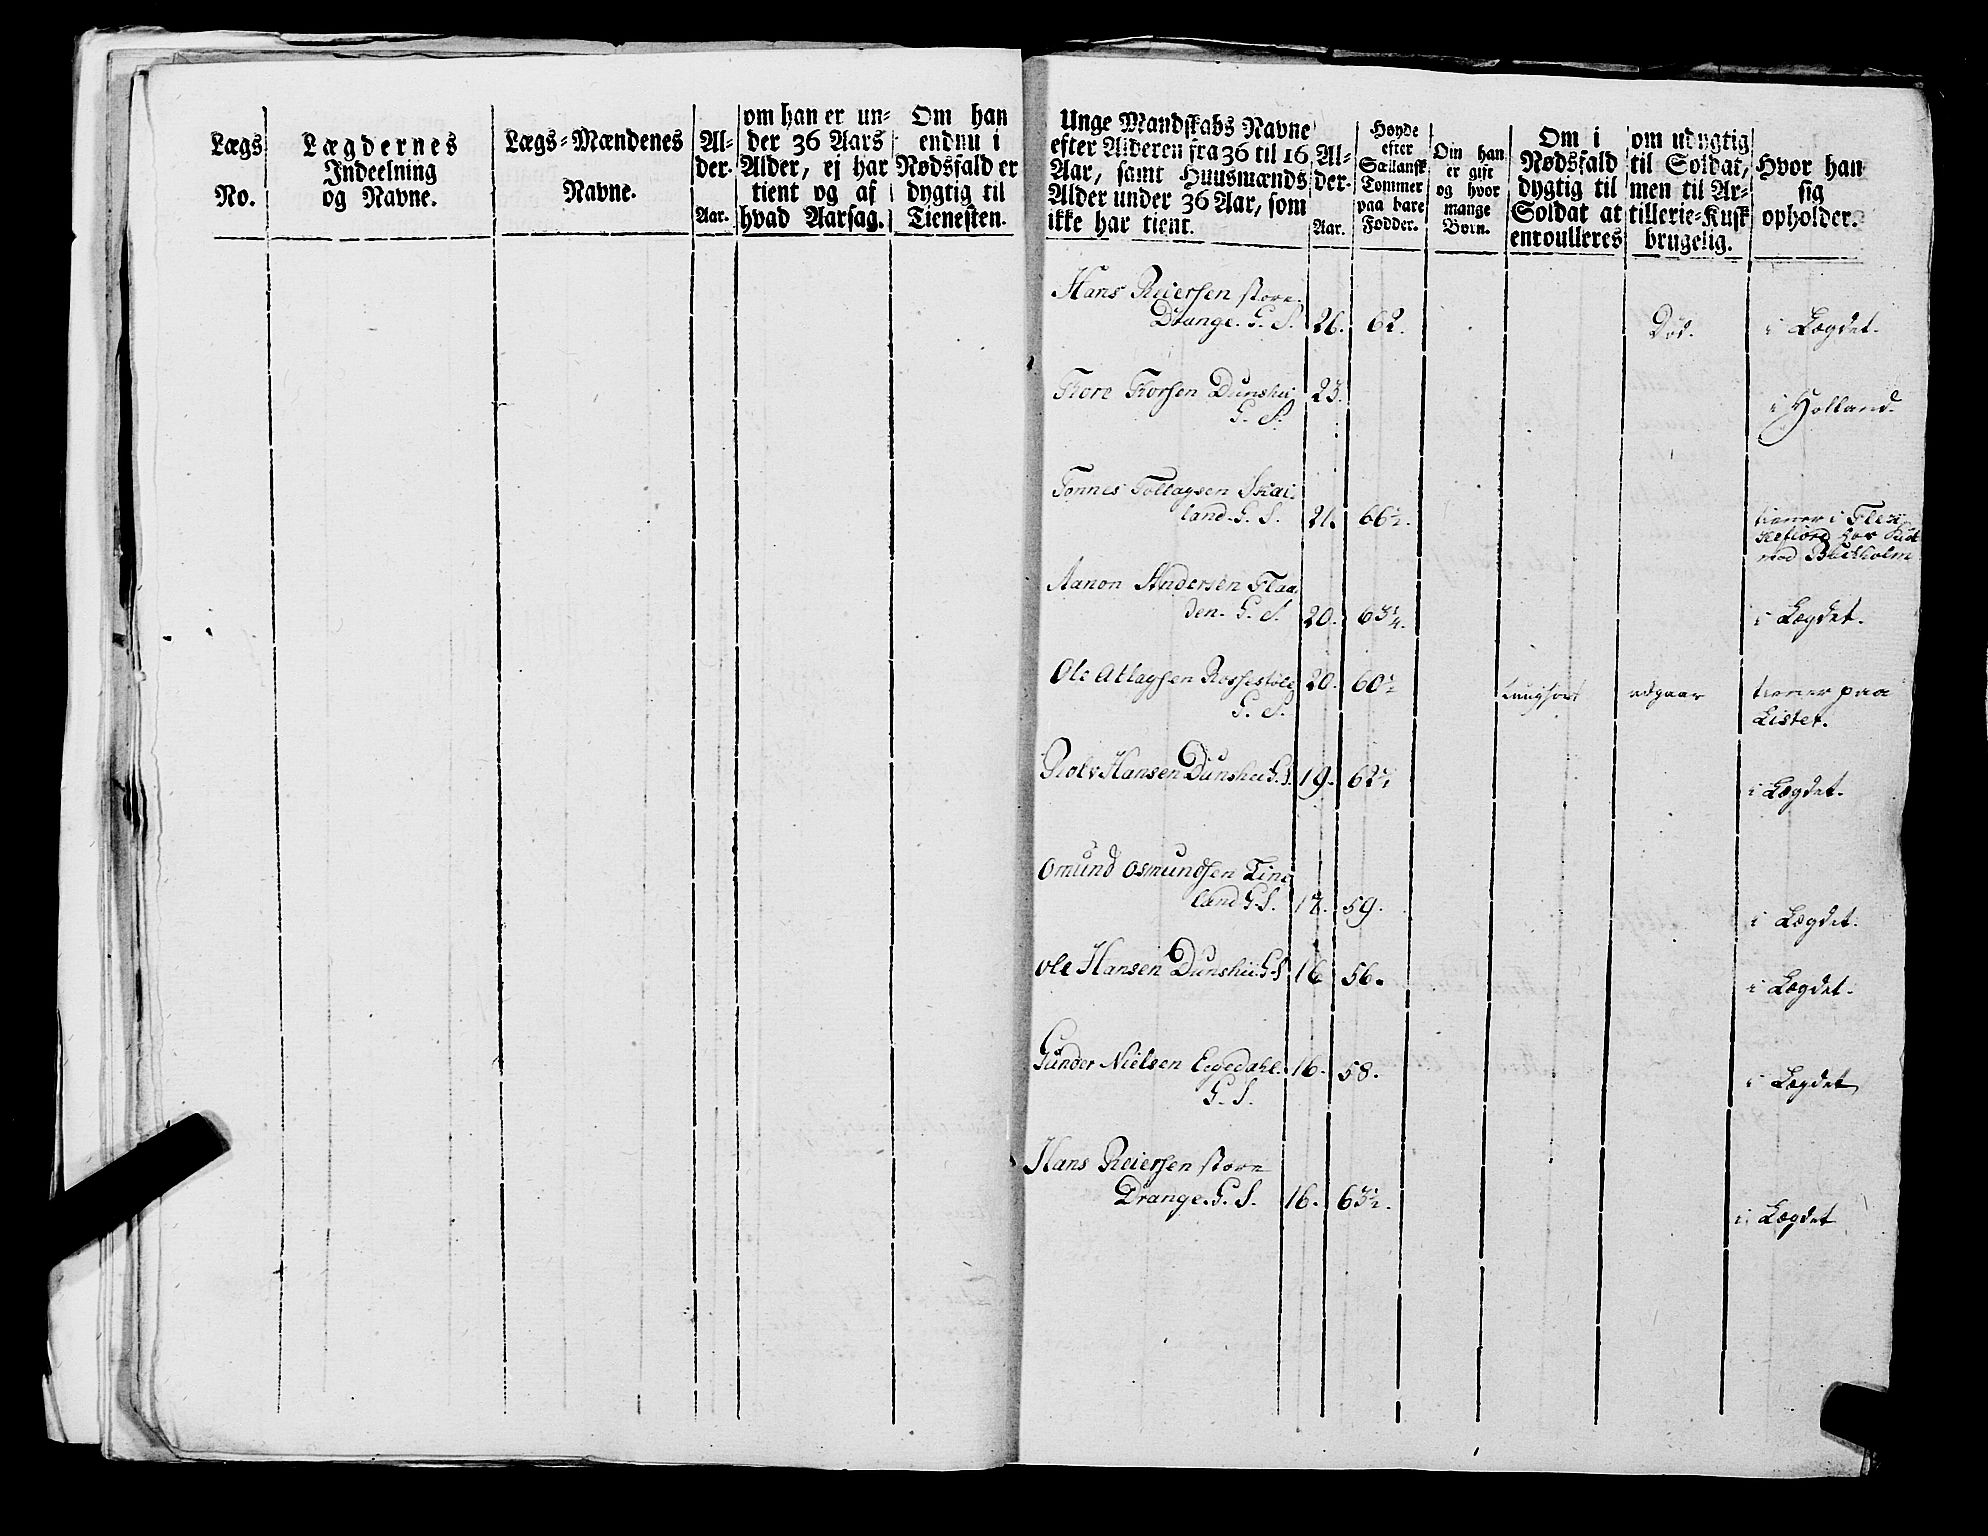 Lægs
No.
Lægdernes
Indeelning
og Navne.
Lægs-Mændenes
Navne.
Al-
der.
Aar.
om han er un-
der 36 Aars
Alder, ej har
tient og af
hvad Aarsag.
Om han
endnu i
Nødsfald er
dygtig til
Tienesten.
Unge Mandskabs Navne
efter Alderen fra 36 til 16
Aar, samt Huusmænds
Alder under 36 Aar, som
ikke har tient.
Al-
der.
Aar.
Høyde
efter
Siællansk
Tommer
paa bare
Fødder.
Om han
er gift
og hvor
mange
Børn.
Om i
Nødsfald
dygtig til
Soldat at
enroulleres
om udygtig
til Soldat,
men til Ar-
tillerie-Kusk
brugelig.
Hvor han
sig
opholder.
Hans Reiersen store
Drange. G. S. 26. 62. Död. i Lægdet.
Tore Torsen Dunshei 23.
G. S. i Holland.
Tønnes Tollagsen Skai-
land. G. S. 21. 66½. tiener i Flek-
kefiord hos
mod Buchholm
Aanon Andersen Flaa-
den. G. S. 20. 63¼. i Lægdet.
Ole Atlagsen Rossestole 20. 60½ udgaar tiener paa
G. S. Lister.
Rolv Hansen Dunshei G. S. 19. 62½ i Lægdet.
Omund Osmundsen Ling-
land G. S. 17. 59. i Lægdet.
Ole Hansen Dunshei G. S 16 56. i Lægdet.
Gunder Nielsen Eegedahl. 16. 58.
G. S. i Lægdet
Hans Reiersen store
Drange. G. S. 16. 63½. i Lægdet